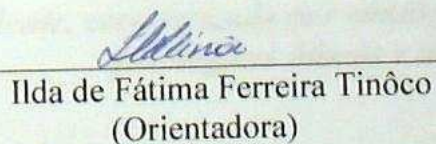 Ilda de Fátima Ferreira Tinôco
(Orientadora)